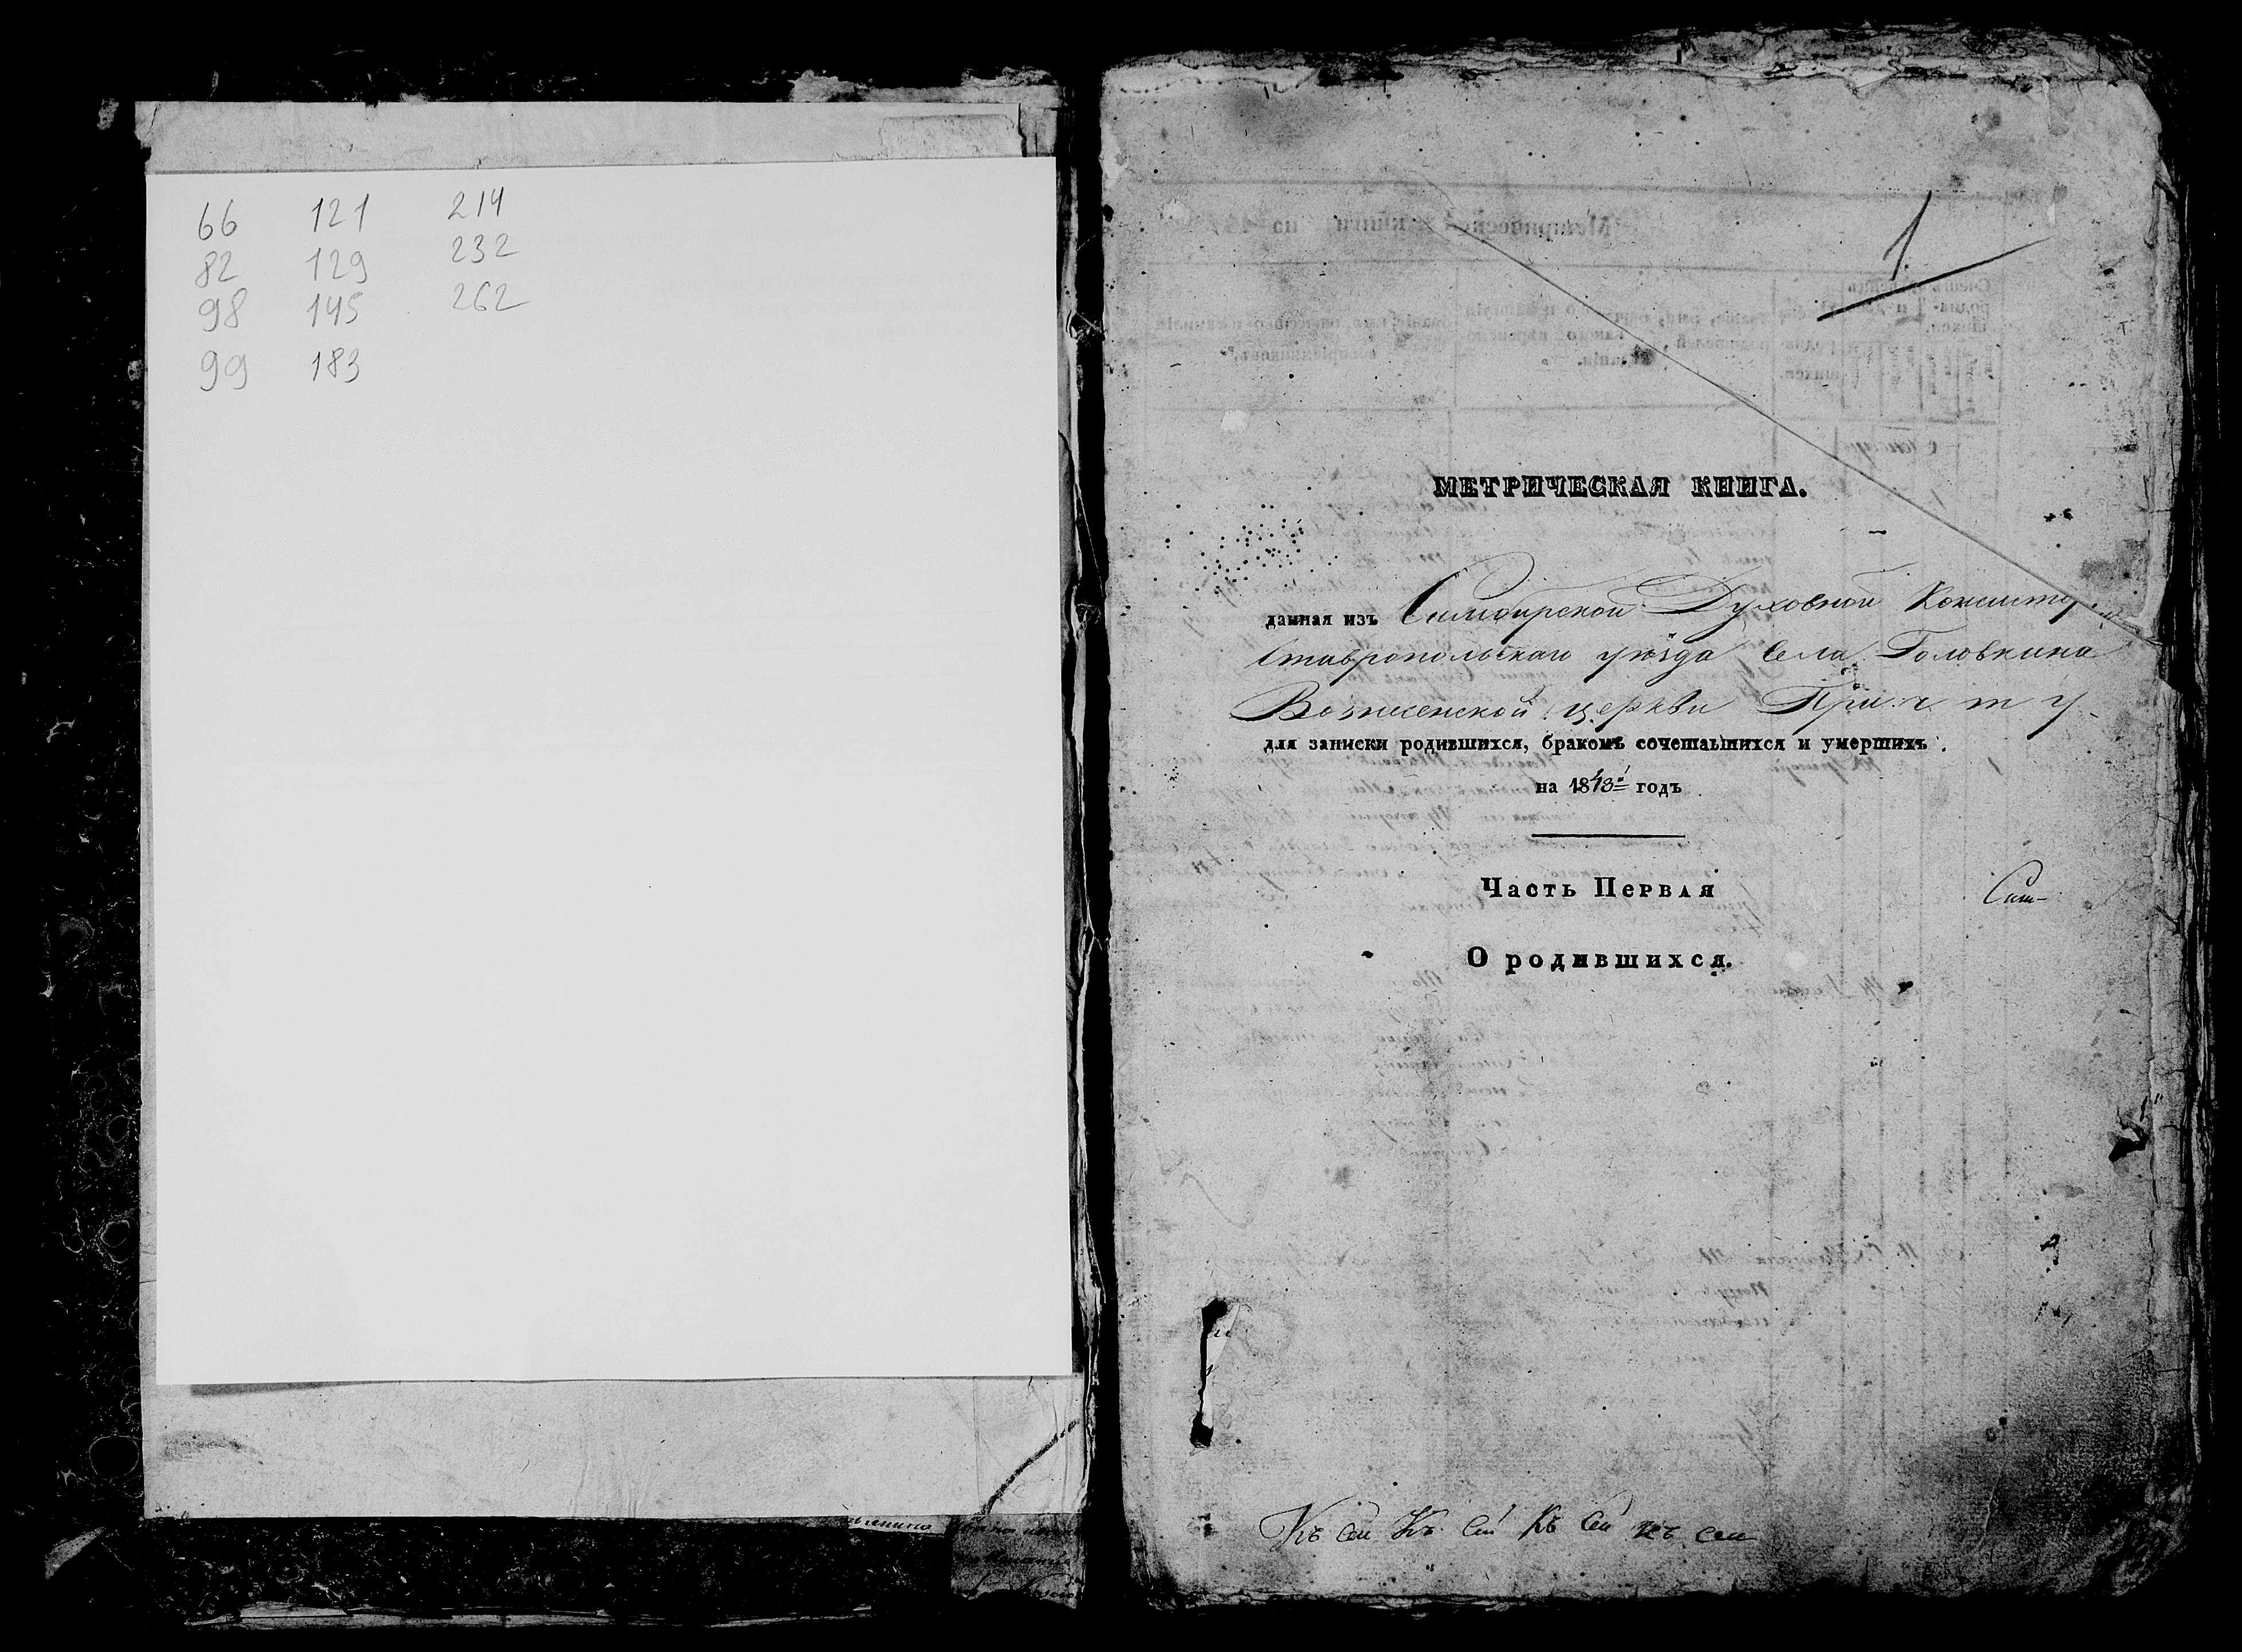 66 121 214
82 129 232
98 145 262
99 183
1.
МЕТРИЧЕСКАЯ КНИГА.
данная изъ Симбирской Духовной
Ставропольскаго уѣзда Села Головкина
Вознесенской церкви Причту
для записки родившихся, бракомъ сочетавшихся и умершихъ
на 1843й годъ
Часть Первая
О родившихся.
Къ сей Къ сей Къ сей къ сей